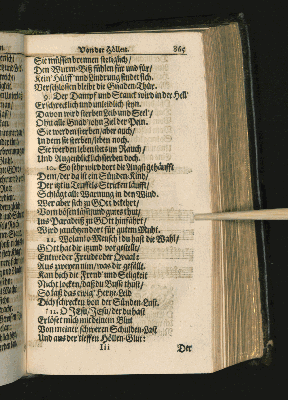 Von der Höllen. 865
Sie müssen brennen stetiglich/
Den Wurm-Biß fühlen für und für/
Kein Hülff und Lindrung findet sich.
Verschlossen bleibt die Gnaden-Thür.
9. Der Dampff und Stanck wird in der Höll
Erschrecklich und unleidlich seyn.
Davon wird sterben Leib und Seel/
Ohn alle Gnad/ ohn Ziel der Pein.
Sie werden sterben/ aber auch/
In dem sie sterben/ leben noch.
Sie werden leben stets im Rauch/
Und Augenblicklich sterben doch.
10. So sehr wird dort die Angst gehäufft
Dem/ der da ist ein Sünden-Kind/
Der itzt in Teuffels-Stricken läufft/
Schlägt alle Warnung in den Wind.
Wer aber sich zu GOtt bekehrt/
Vom bösen läßt und gutes thut/
Ins Paradeiß zu GOtt hinfährt/
Wird jauchtzen dort für gutem Muht.
11. Wolan/ o Mensch/ du hast die Wahl/
GOtt hat dir itzund vorgestellt/
Entweder Freude oder Quaal:
Aus zweyen nim/ was dir gefällt.
Kan dich die Freud und Seligkeit
Nicht locken/ daß du Busse thust/
So laß das ewig' Hertz-Leid
Dich schrecken von der Sünden-Lust.
12. O JEsu/ JEsu/ der du hast
Erlöset mich mit deinem Blut
Von meiner schweren Schulden-Last
Und aus der tieffen Höllen-Glut:
Iii
Der